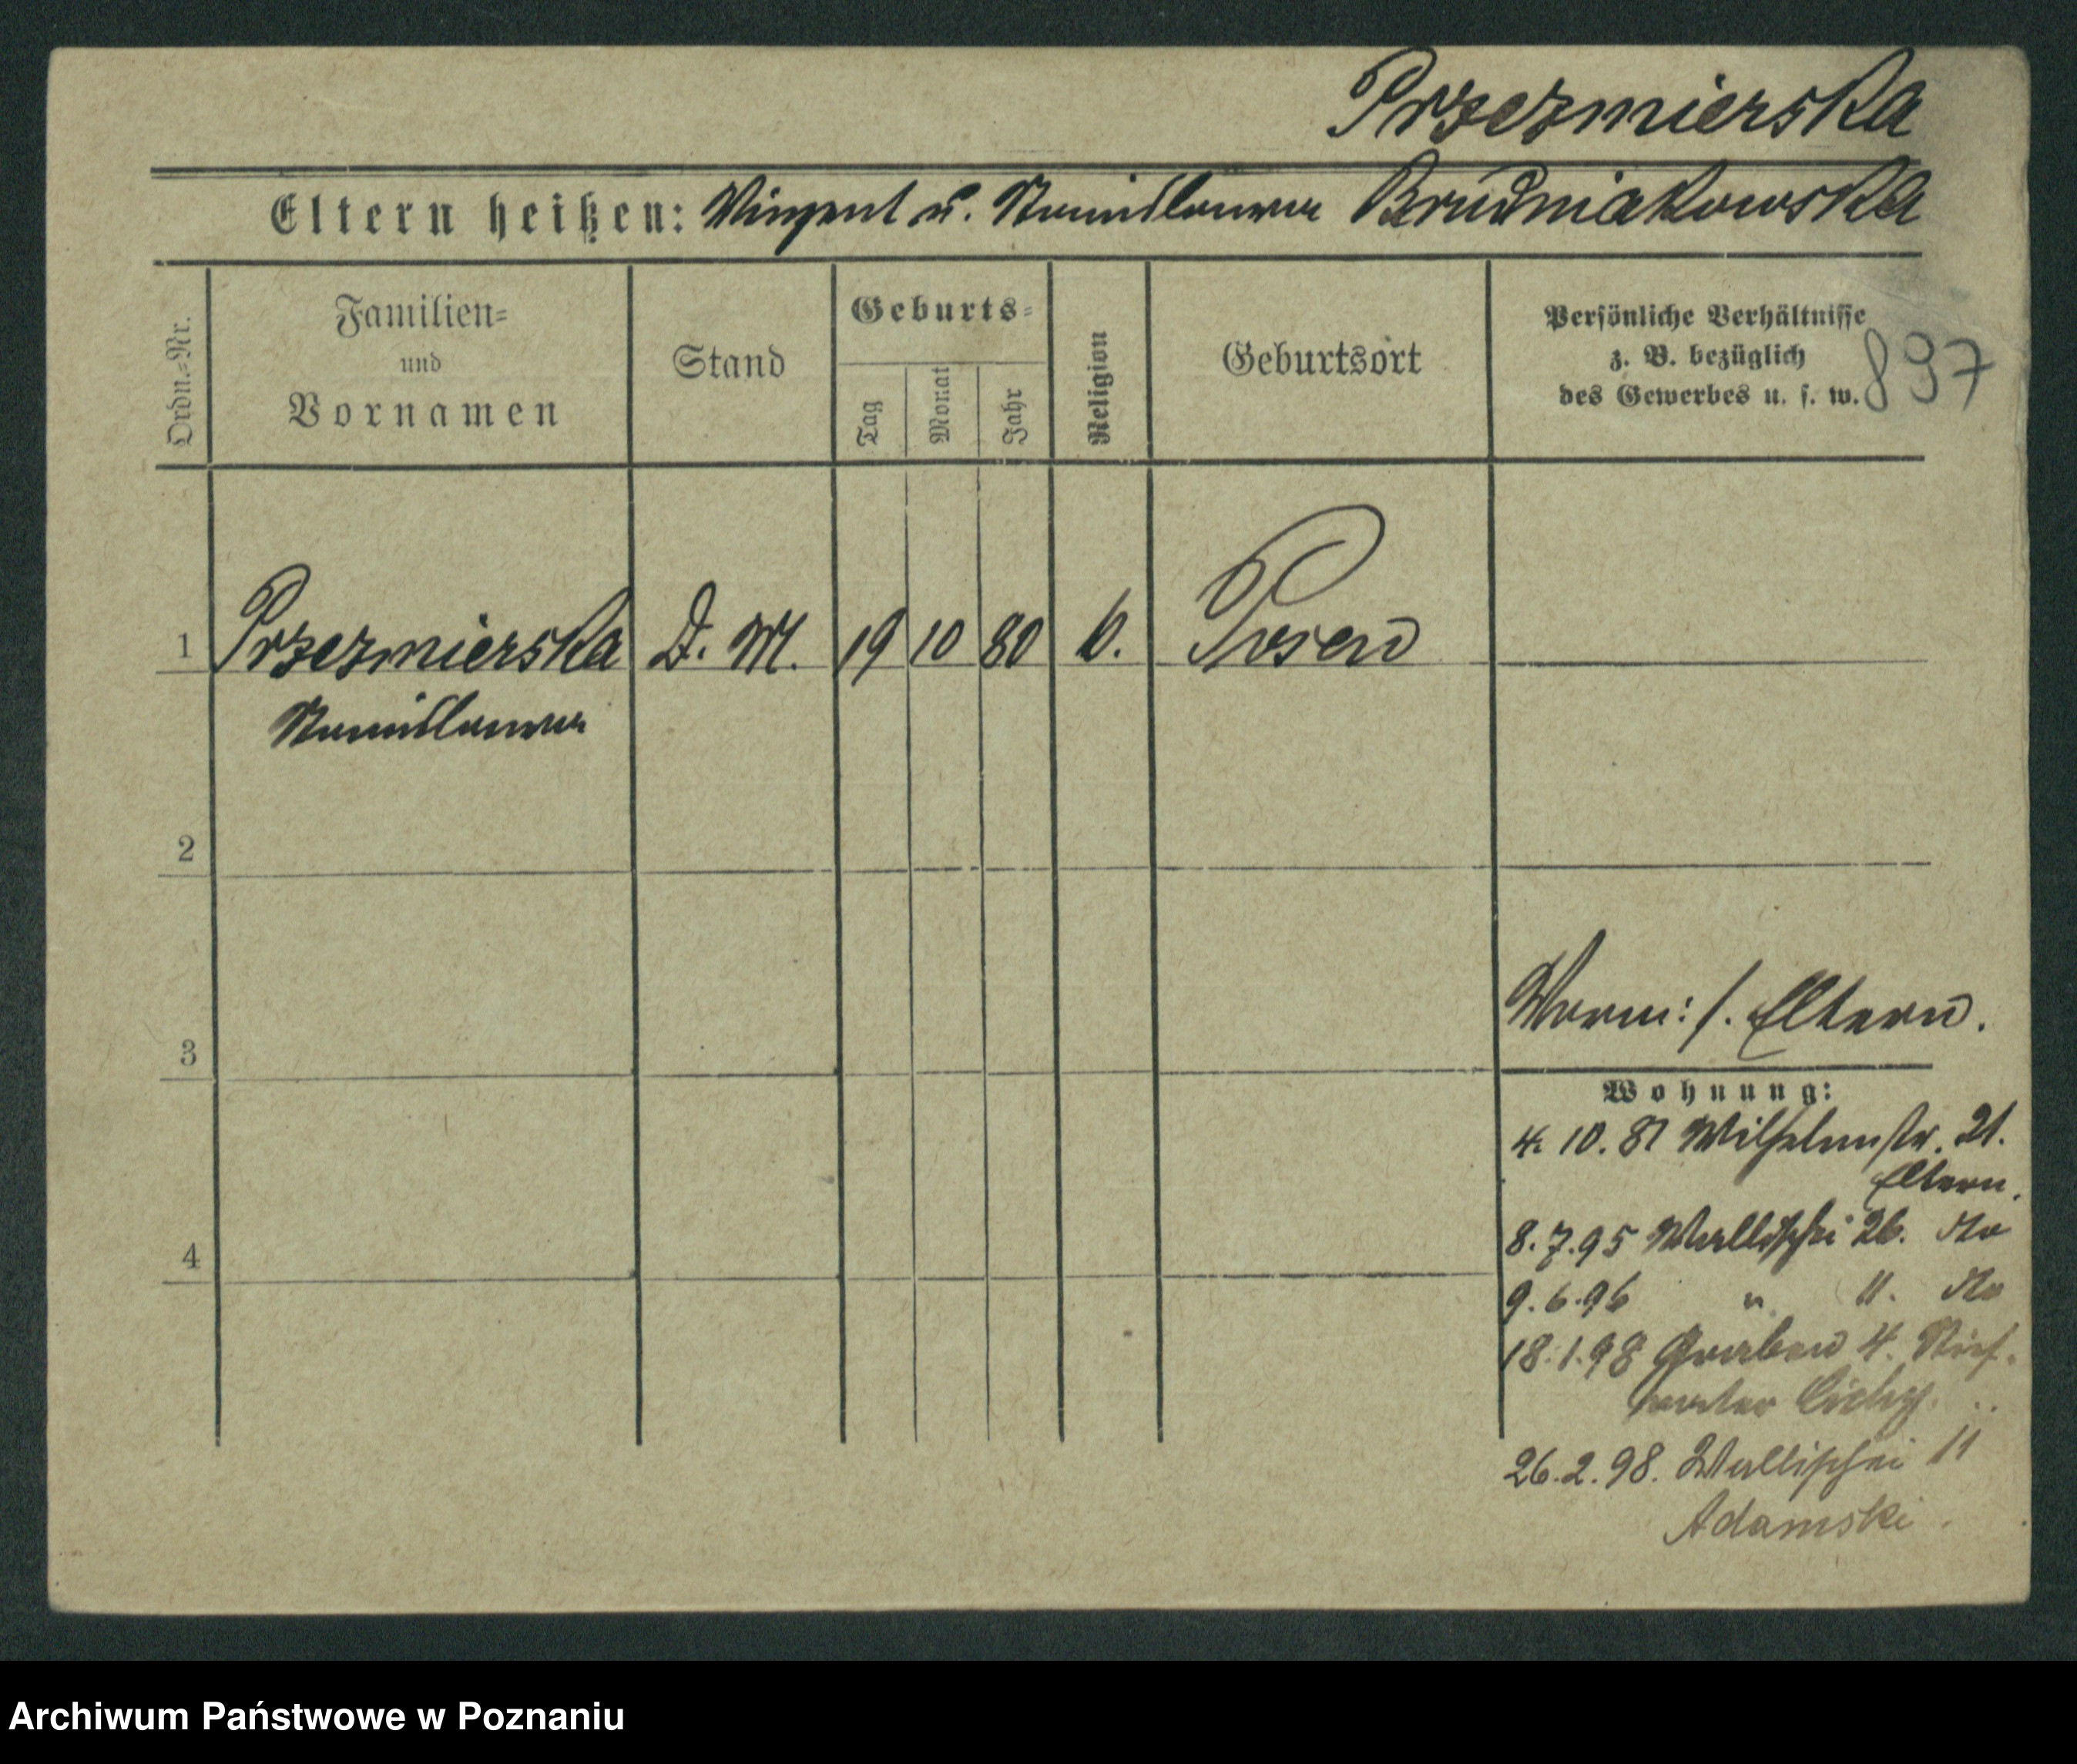 Przezmierska
Eltern heißen: Vinzent u. Stanislawa Brudniakowska
Ordn.-Nr.
Familien-
und
Vornamen
Stand
Geburts-
Tag
Monat
Jahr
Religion
Geburtsort
Persönliche Verhältnisse
z. B. bezüglich
des Gewerbes u. s. w.
897
1 Przezmierska D. M. 19 10 80 k. Posen
Stanislawa
2
3
4
Vorm: s. Eltern.
Wohnung:
4. 10. 81 Wilhelmstr. 21.
Eltern.
8. 7. 95 Wallischei 26. do
9. 6. 96 " 11. do
18. 1. 98 Graben 4. Stief-
vater Cichy.
26. 2. 98. Wallischei 11
Adamski.
Archiwum Państwowe w Poznaniu